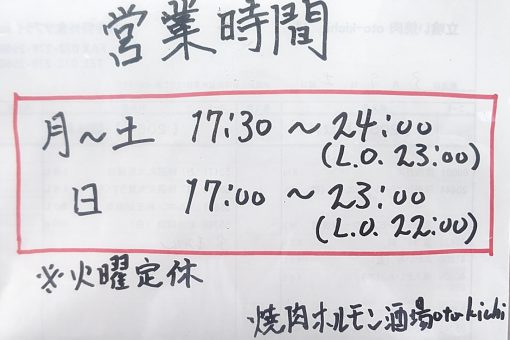 営業時間
月~土 17:30 ~ 24:00
(L.O. 23:00)
日 17:00 ~ 23:00
(L.O. 22:00)
※火曜定休
焼肉ホルモン酒場oto-kichi